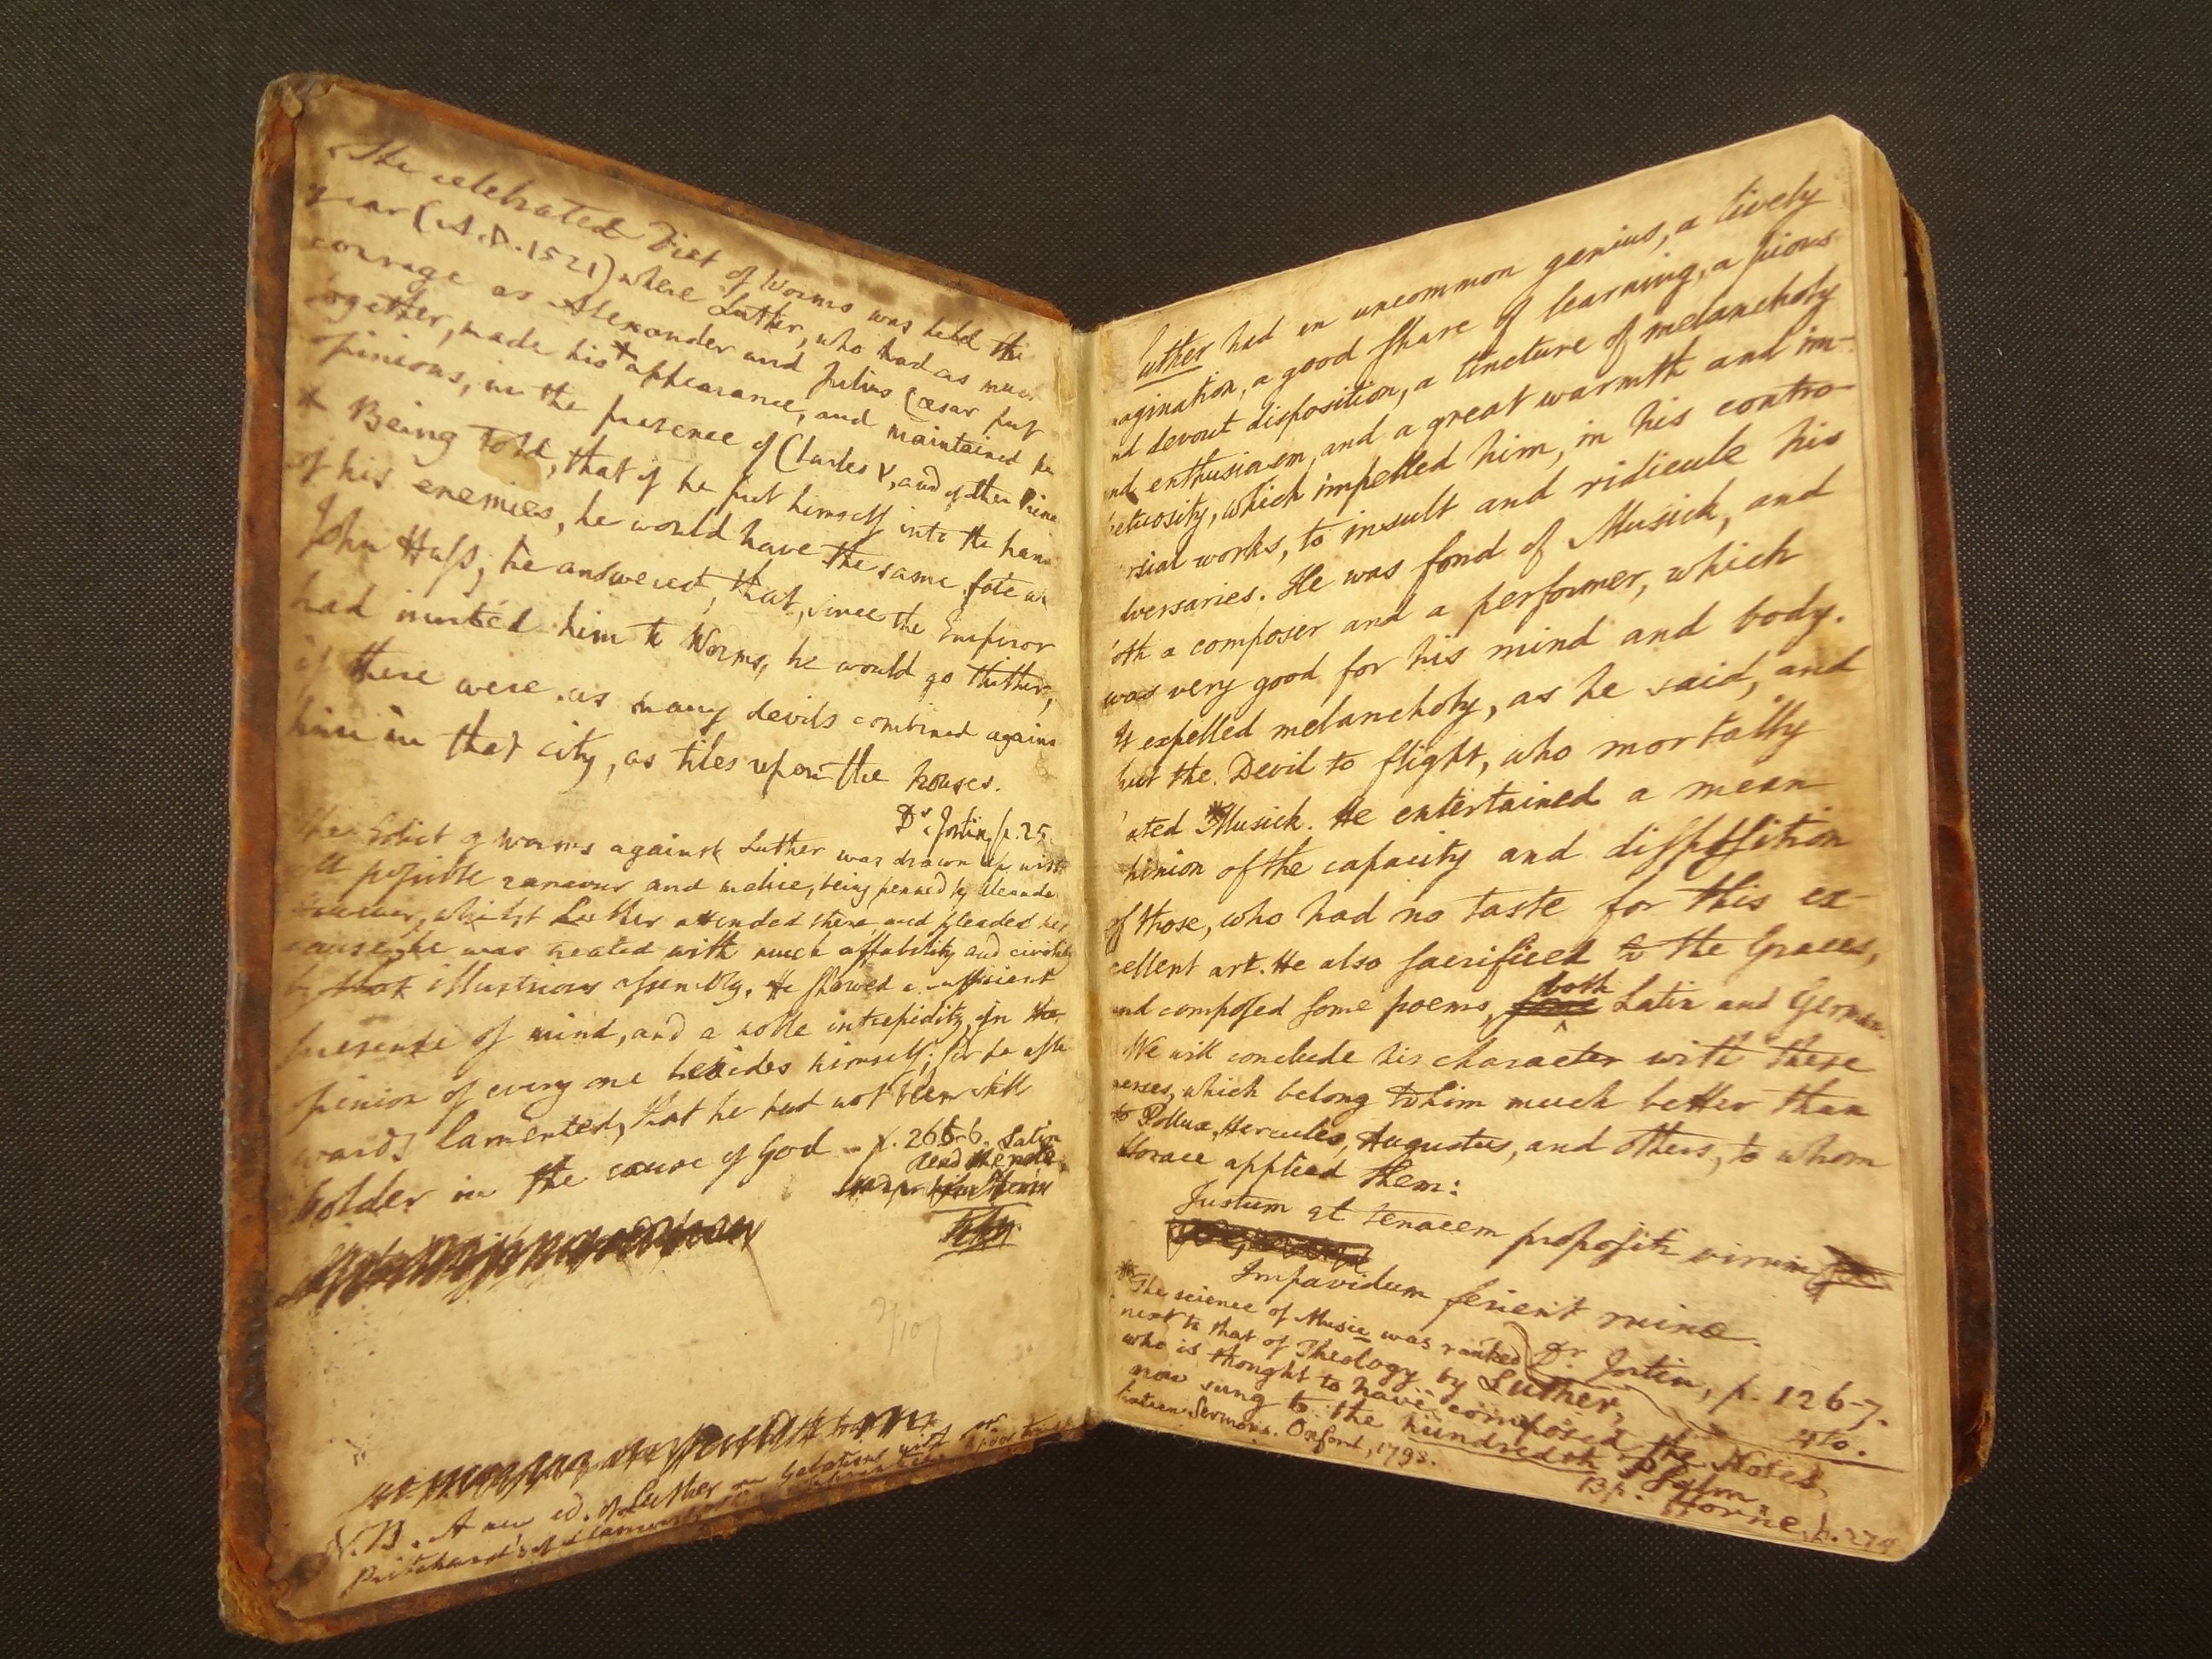 The celebrated Diet of Worms was held this
year (A.D. 1521) where Luther, who had as much
courage as Alexander and Julius Cæsar put
together, made his* appearance, and maintained his
opinions, in the presence of Charles V, and other Prince
* Being told, that if he put himself into the hands
of his enemies, he would have the same fate as
John Huss; he answered, that, since the Emperor
had invited him to Worms, he would go thither,
if there were as many devils combined against
him in that city, as tiles upon the houses.
Dr. Jortin, p. 25.
The Edict of Worms against Luther was drawn up with
all possible rancour and malice, being penned by Aleander
However, whilst Luther attended there, and pleaded his
cause, he was treated with much affability and civility
by that illustrious assembly. He showed a sufficient
presence of mind, and a noble intrepidity, in the
opinion of every one besides himself; for he after
wards lamented, that he had not been still
bolder in the cause of God – p. 26
Latin
read the note
N.B. A new ed. of Luther on Galatians
Luther had an uncommon genius, a lively
magination, a good share of learning, a pious
nd devout disposition, a tincture of melancholy
nd enthusiasm, and a great warmth and im-
petuosity, which impelled him, in his contro-
rsial works, to insult and ridicule his
dversaries. He was fond of Musick, and
both a composer and a performer, which
was very good for his mind and body.
It expelled melancholy, as he said, and
put the Devil to flight, who mortally
ated *Musick. He entertained a mean
pinion of the capacity and disposition
of those, who had no taste for this ex-
cellent art. He also sacrificed to the Graces,
nd composed some poems, both Latin and German.
We will conclude his character with these
verses, which belong to him much better than
to Pollux, Hercules, Augustus, and others, to whom
Horace applied them:
Justum et tenacem propositi virum
Impavidum ferient ruinæ.
Dr. Jortin, p. 126-7.
4to.
*The science of Music was ranked
next to that of Theology by Luther,
who is thought to have composed the Notes
now sung to the hundredth Psalm.
Sixteen Sermons. Oxford, 1795.
Bp. Horne, p. 274